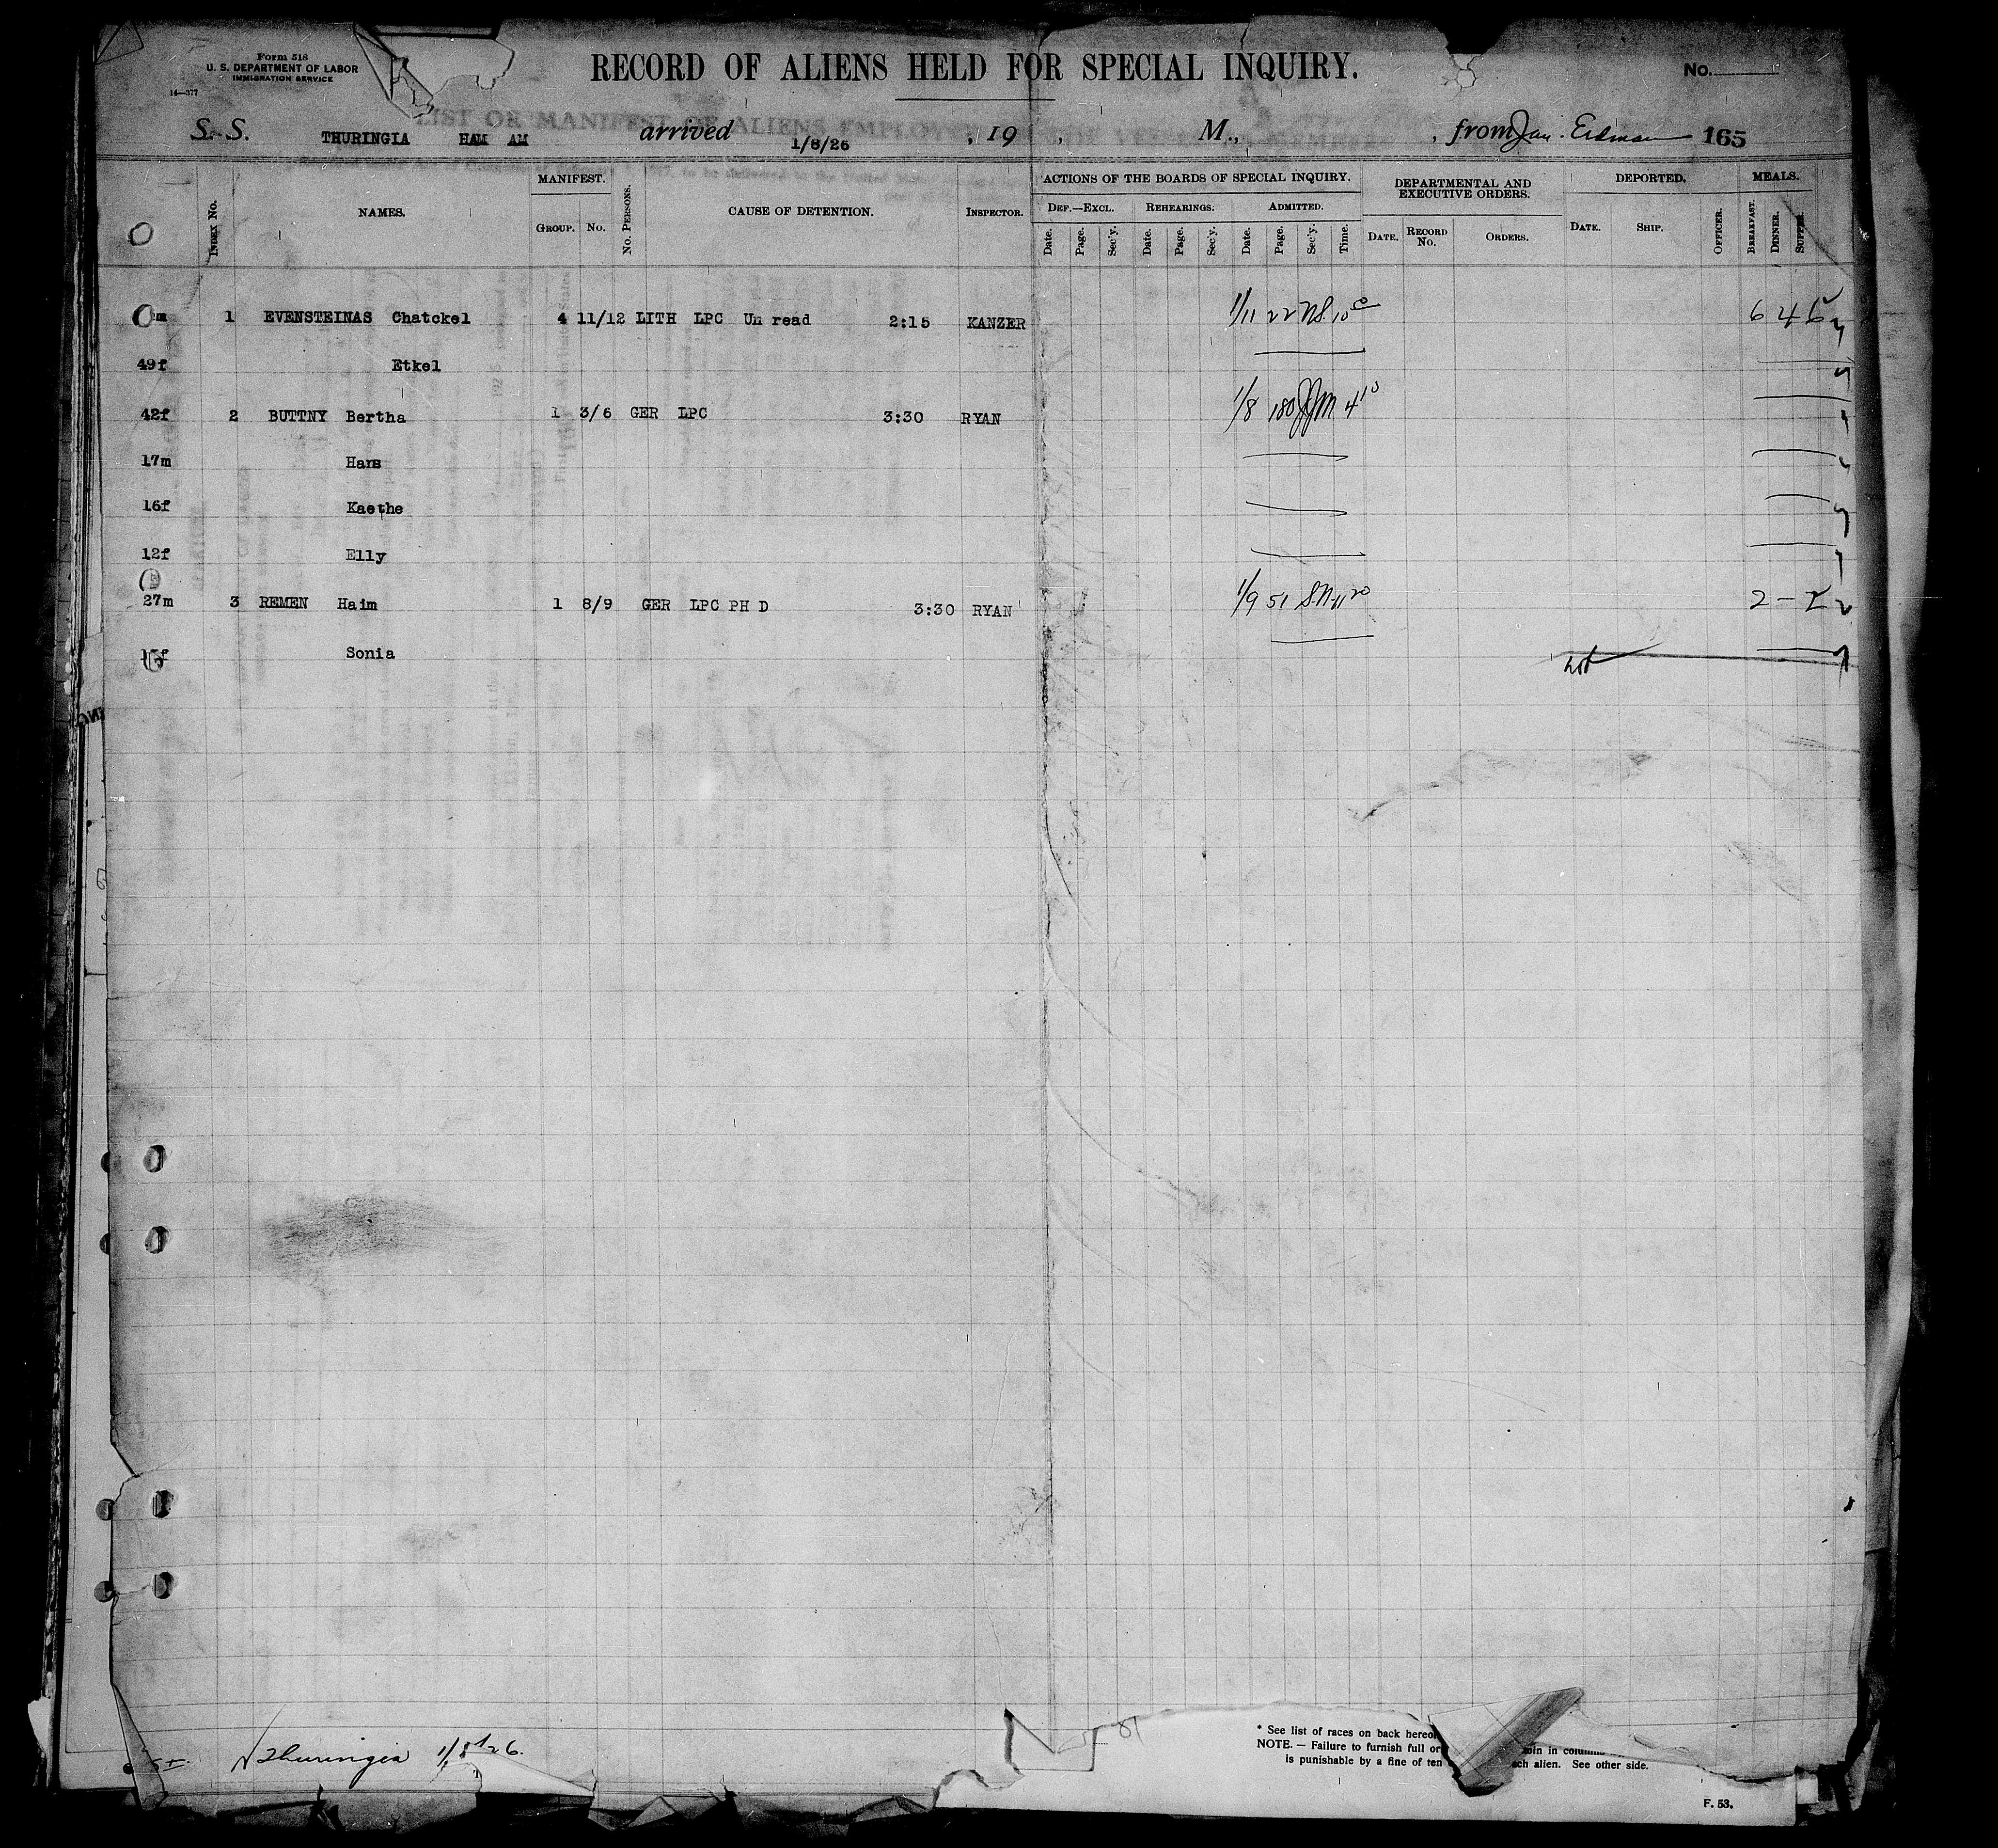 Form 518
U. S. DEPARTMENT OF LABOR
IMMIGRATION SERVICE
14—377
RECORD OF ALIENS HELD FOR SPECIAL INQUIRY.
No.
LIST OR MANIFEST OF ALIENS EMPLOY
S. S. THURINGIA HAM AM arrived 1/8/26, 19 , M., , from Jan. Erdman 165
INDEX No. NAMES. MANIFEST. GROUP. No. No. PERSONS. CAUSE OF DETENTION. INSPECTOR. ACTIONS OF THE BOARDS OF SPECIAL INQUIRY. DEPARTMENTAL AND EXECUTIVE ORDERS. DEPORTED. MEALS.
DEF.—EXCL. REHEARINGS. ADMITTED.
Date. Page. Sec'y. Date. Page. Sec'y. Date. Page. Sec'y. Time. DATE. RECORD No. ORDERS. DATE. SHIP. OFFICER. BREAKFAST. DINNER. SUPPER.
m 1 EVENSTEINAS Chatckel 4 11/12 LITH LPC Un read 2:15 KANZER 1/11 22 10 6 4 6
49f Etkel
42f 2 BUTTNY Bertha 1 3/6 GER LPC 3:30 RYAN 1/8 180 JJM 4 10
17m Hans
16f Kaethe
12f Elly
27m 3 REMEN Haim 1 8/9 GER LPC PH D 3:30 RYAN 1/9 51 S.N. 11 20 2 – 2
f Sonia
Thuringia 1/8/26.
* See list of races on back hereo
NOTE. — Failure to furnish full or
is punishable by a fine of ten ach alien. See other side.
F. 53.